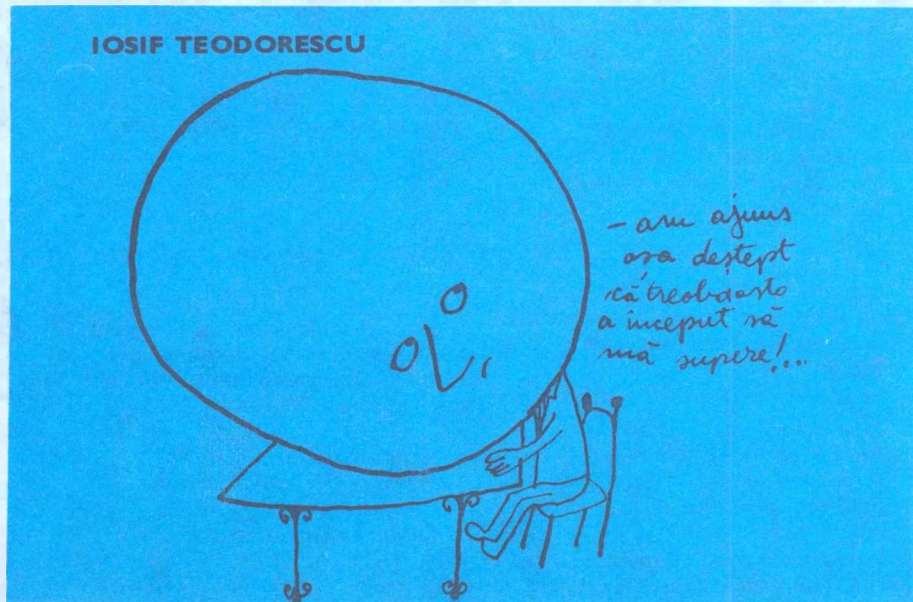 IOSIF TEODORESCU
– am ajuns
așa deștept
că treaba asta
a început să
mă supere!...